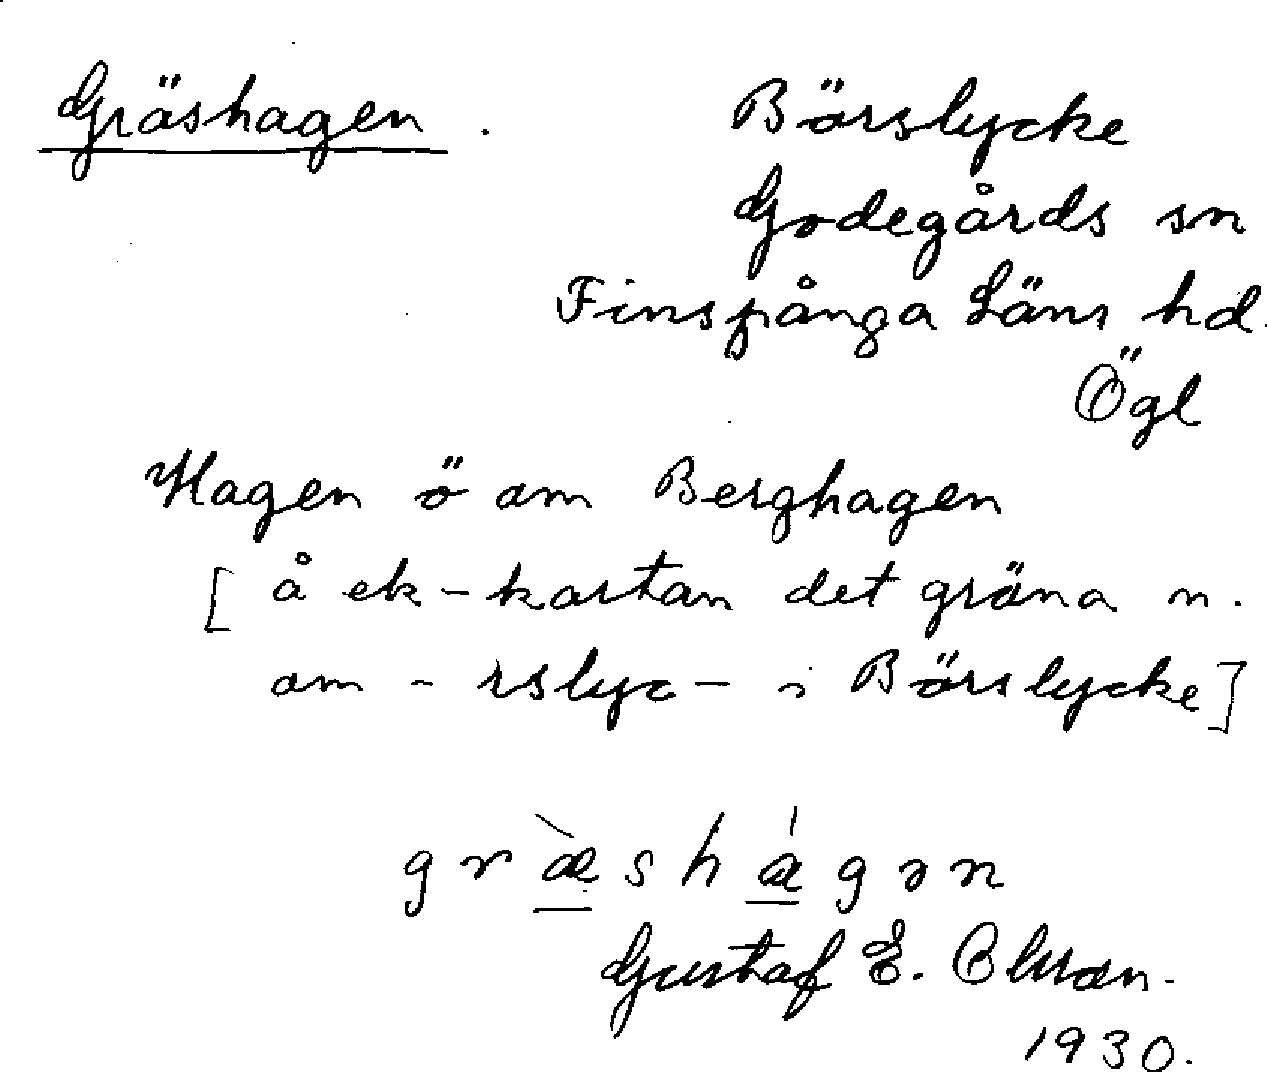 Gräshagen.
Börslycke
Godegårds sn
Finspånga Läns hd.
Ögl
Hagen ö om Berghagen
[å ek-kartan det gröna n.
om - rslyc - i Börslycke]
græ̀shágən
Gustaf E.
1930.